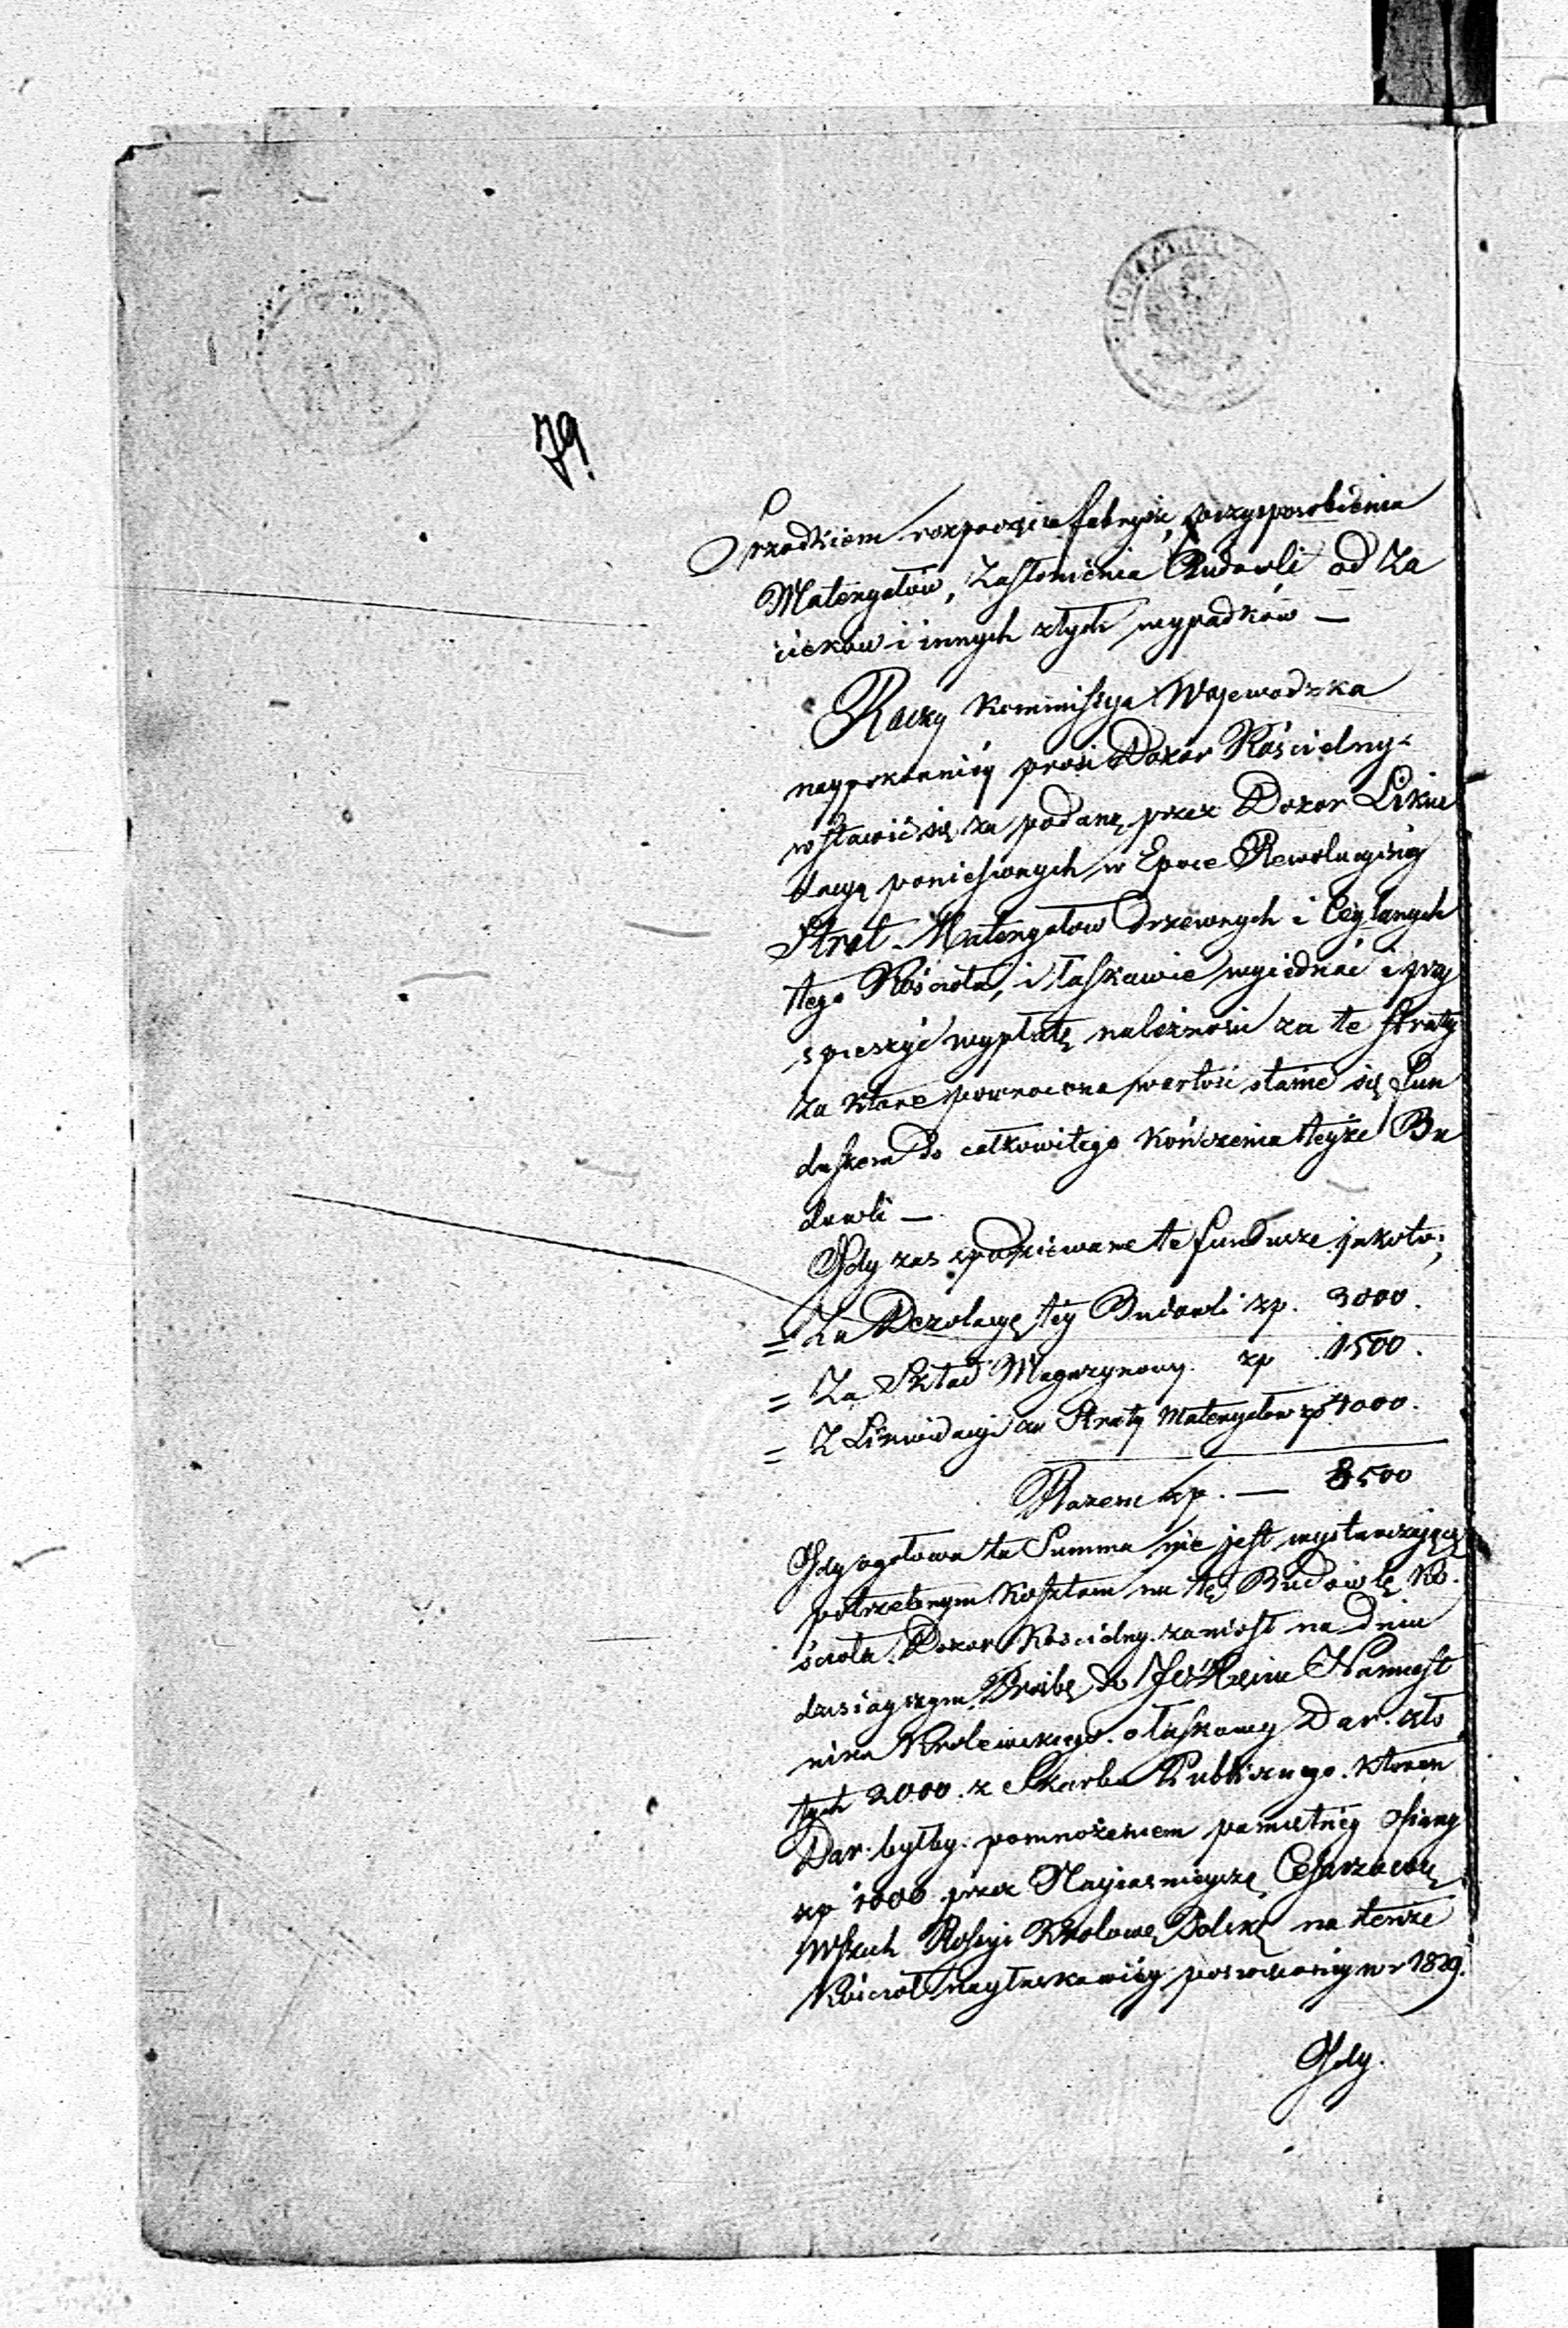 79
Srzodkiem rozpoczęcia fabryki, przysposobienia
Materyałów, zasłonienia Budowli od Za
cieków i innych złych wypadków —
Raczy Kommissya Wojewodzka
naypokorniéy prosi Dozór Kościelny
wstawić się za podaną przez Dozor Likwi
dacyą poniesionych w Epoce Rewolucyinéy
Strat Materyałow drzewnych i Ceglanych
tego Kościoła, i łaskawie wyiednać i przy
spieszyć wypłatę należności za te straty
za które powrócona wartość stanie się Fun
duszem do całkowitego Kończenia teyże Bu
dowli —
Gdy zas spodziewane te fundusze jakoto;
= Za Dezolacyę téy Budowli zp. 3000.
= Za Skład Magazynowy zp 1500.
= Z Likwidacyi za Straty Materyałow zp 4000.
Razem zp. — 8500
Gdy ogołowa ta Summa nie jest wystarczającą
potrzebnym Kosztom na tę Budowlę Ko
ścioła Dozor Kościelny zaniosł na dniu
dzisiayszym Proźbę do JO Xięcia Namiest
nika Krolewskiego o łaskawy Dar zło
tych 2000 z Skarbu Publicznego. któren
Dar byłby pomnożeniem pamiętnéy ofiary
zp 1000 przez Nayiasnieyszą Cesarzową
Wszech Rossyi Krolowę Polską na tenże
Kościoł nayłaskawiéy poswięconéy w r 1829.
Gdy.